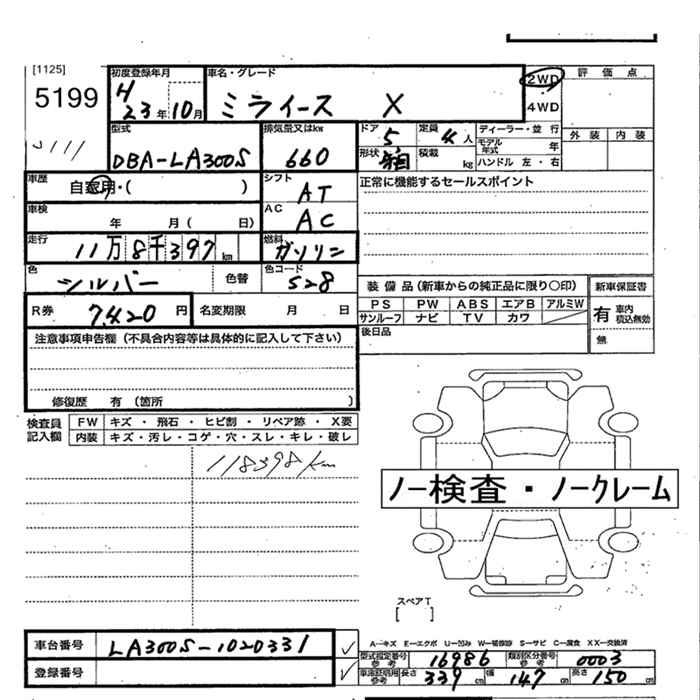 [1125]
5199
初度登録年月
H
23年10月
車名・グレード
ミライース X
2WD
4WD
評価点
外装 内装
型式
DBA-LA300S
排気量又はkw
660
ドア 5
定員 4人
形状 箱
積載 kg
ディーラー・並行
モデル年式 年
ハンドル 左・右
車歴
自家用・( )
シフト
AT
正常に機能するセールスポイント
車検
年 月( 日)
AC
AC
走行
11万8千397km
燃料
ガソリン
色
シルバー
色替
色コード
S28
R券
7420円
名変期限 月 日
装備品(新車からの純正品に限り○印)
PS PW ABS エアB アルミW
サンルーフ ナビ TV カワ
後日品
新車保証書
有 車内 積込無効
無
注意事項申告欄(不具合内容等は具体的に記入して下さい)
修復歴 有(箇所 )
検査員記入欄
FW キズ・飛石・ヒビ割・リペア跡・X要
内装 キズ・汚レ・コゲ・穴・スレ・キレ・破レ
118398km
ノー検査・ノークレーム
スペアT
[ ]
車台番号
LA300S-1020331
登録番号
A―キズ E―エクボ U―凹み W―補修跡 S―サビ C―腐食 XX―交換済
型式指定番号 参考 16986
類別区分番号 参考 0003
車庫証明用 参考 長さ 339cm 幅 147cm 高さ 150cm